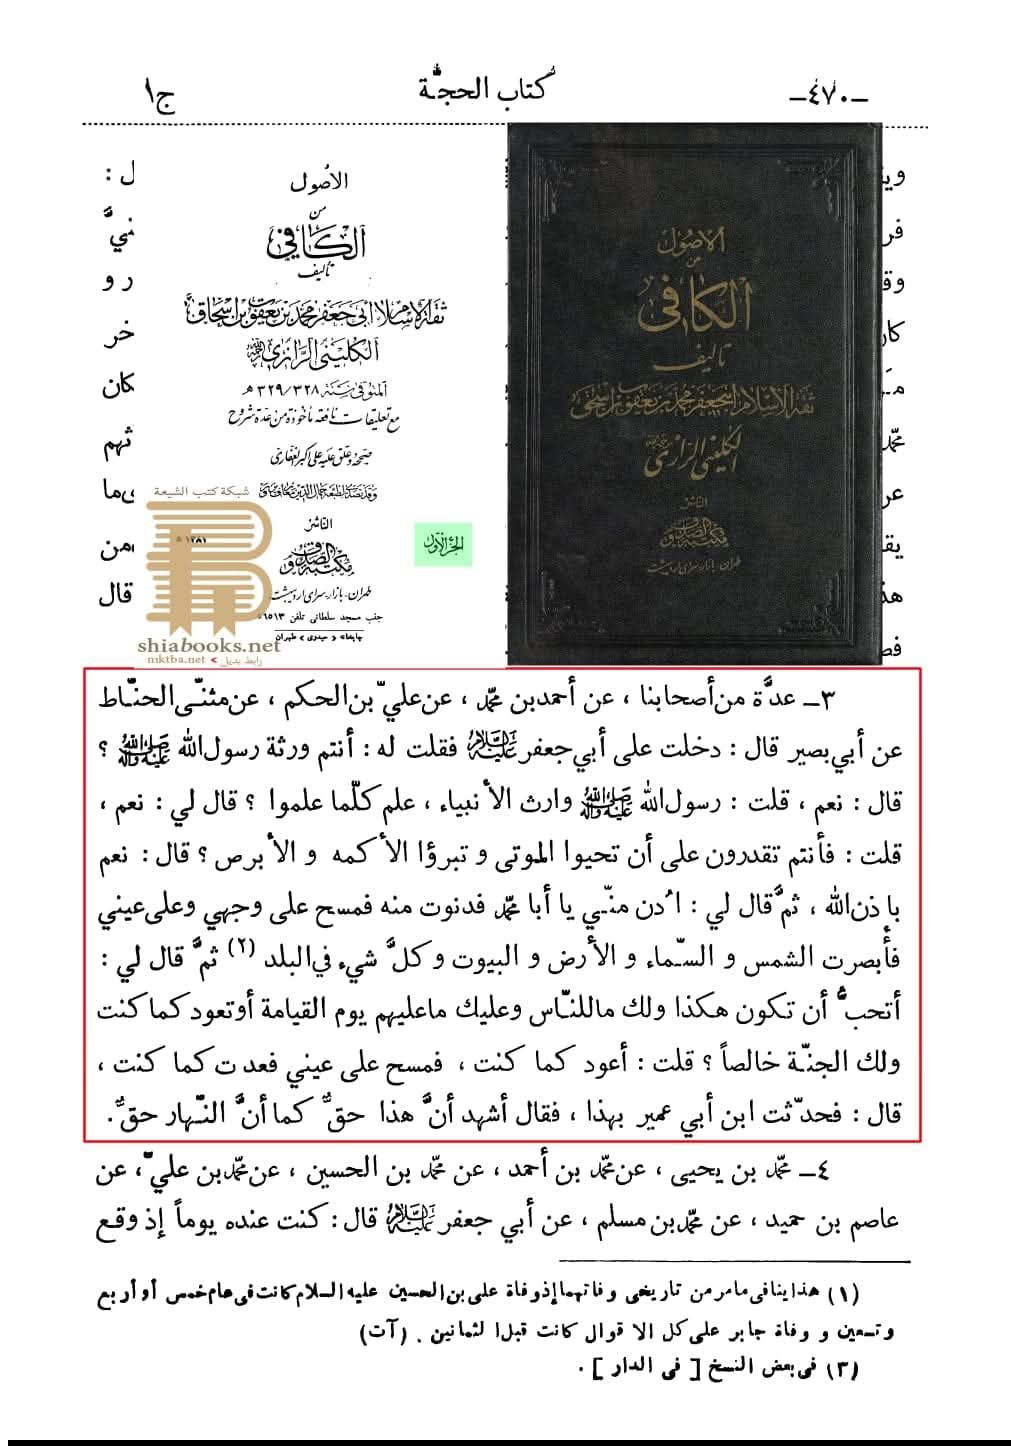 ـ٤٧٠ـ
كتاب الحجّة
ج١
الاُصول
من
الكافي
تأليف
ثقة الاسلام أبي جعفر محمد بن يعقوب بن اسحاق
الكليني الرازي
المتوفى سنة ٣٢٨/٣٢٩ هـ
مع تعليقات نافعة مأخوذة من عدة شروح
صححه وعلق عليه علي اكبر الغفاري
الناشر
مكتبة الصدوق
طهران - بازار سراى اردیبهشت
جنب مسجد سلطانی تلفن ٥٦٥١٣
چاپخانه « حیدری » طهران
الجزء الاول
شبكة كتب الشيعة
shiabooks.net
mktba.net < رابط بديل
الاصول
من
الكافي
تأليف
ثقة الاسلام ابي جعفر محمد بن يعقوب بن اسحق
الكليني الرازي
الناشر
مكتبة الصدوق
طهران - بازار سراى اردیبهشت
وي
ل :
فر
ني
وق
ر و
كا
خر
كان
محمّد
ثهم
عن
ى ما
يق
من
هذ
قال
٣ـ عدَّة من أصحابنا ، عن أحمد بن محمّد ، عن عليّ بن الحكم ، عن مثنّى الحنّاط
عن أبي بصير قال : دخلت على أبي جعفر عليه السلام فقلت له : أنتم ورثة رسول الله صلى الله عليه وآله ؟
قال : نعم ، قلت : رسول الله صلى الله عليه وآله وارث الأنبياء ، علم كلّما علموا ؟ قال لي : نعم ،
قلت : فأنتم تقدرون على أن تحيوا الموتى و تبرؤا الأكمه و الأبرص ؟ قال : نعم
باذن الله ، ثمَّ قال لي : اُدن منّي يا أبا محمّد فدنوت منه فمسح على وجهي وعلى عيني
فأبصرت الشمس و السّماء و الأرض و البيوت و كلَّ شيء في البلد (٢) ثمَّ قال لي :
أتحبُّ أن تكون هكذا ولك ما للنّاس وعليك ما عليهم يوم القيامة أو تعود كما كنت
ولك الجنّة خالصاً ؟ قلت : أعود كما كنت ، فمسح على عيني فعدت كما كنت ،
قال : فحدّثت ابن أبي عمير بهذا ، فقال أشهد أنَّ هذا حقٌّ كما أنَّ النّهار حقٌّ.
٤ـ محمّد بن يحيى ، عن محمّد بن أحمد ، عن محمّد بن الحسين ، عن محمّد بن عليّ، عن
عاصم بن حميد ، عن محمّد بن مسلم ، عن أبي جعفر عليه السلام قال : كنت عنده يوماً إذ وقع
(١) هذا ينافى ما مر من تاريخى وفاتهما إذ وفاة على بن الحسين عليه السلام كانت فى عام خمس أو أربع
وتسعين و وفاة جابر على كل الاقوال كانت قبل الثمانين . (آت)
(٣) فى بعض النسخ [ فى الدار ] .